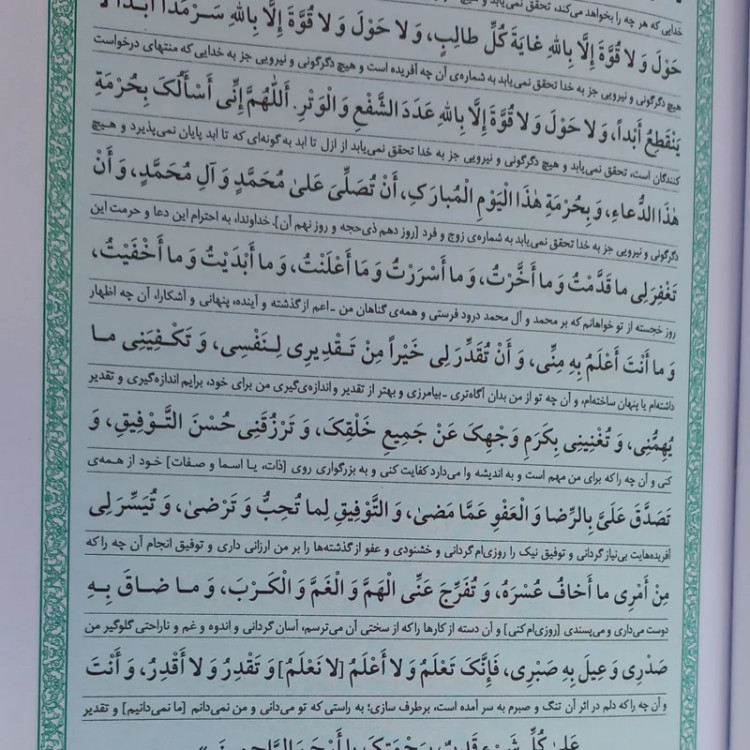 خدایی که هر چه را بخواهد می‌کند، تحقق نمی‌یابد و هیچ
حَوْلَ وَ لا قُوَّةَ إِلَّا بِاللهِ غايَةَ كُلِّ طالِبٍ، وَ لا حَوْلَ وَ لا قُوَّةَ إِلَّا بِاللهِ سَرْمَداً أَبَداً لا
هیچ دگرگونی و نیرویی جز به خدا تحقق نمی‌یابد به شماره‌ی آن چه آفریده است و هیچ دگرگونی و نیرویی جز به خدایی که منتهای درخواست
يَنْقَطِعُ أَبَداً، وَ لا حَوْلَ وَ لا قُوَّةَ إِلَّا بِاللهِ عَدَدَ الشَّفْعِ وَ الْوَتْرِ. أَللّٰهُمَّ إِنِّى أَسْأَلُكَ بِحُرْمَةِ
کنندگان است، تحقق نمی‌یابد و هیچ دگرگونی و نیرویی جز به خدا تحقق نمی‌یابد از ازل تا ابد به گونه‌ای که تا ابد پایان نمی‌پذیرد و هیچ
هٰذَا الدُّعاءِ، وَ بِحُرْمَةِ هٰذَا الْيَوْمِ الْمُبارَكِ، أَنْ تُصَلِّىَ عَلىٰ مُحَمَّدٍ وَ آلِ مُحَمَّدٍ، وَ أَنْ
دگرگونی و نیرویی جز به خدا تحقق نمی‌یابد به شماره‌ی زوج و فرد [روز دهم ذی‌حجه و روز نهم آن]. خداوندا، به احترام این دعا و حرمت این
تَغْفِرَ لِى ما قَدَّمْتُ وَ ما أَخَّرْتُ، وَ ما أَسْرَرْتُ وَ مَا أَعْلَنْتُ، وَ ما أَبْدَيْتُ وَ ما أَخْفَيْتُ،
روز خجسته از تو خواهانم که بر محمد و آل محمد درود فرستی و همه‌ی گناهان من ـ اعم از گذشته و آینده، پنهانی و آشکارا، آن چه اظهار
وَ ما أَنْتَ أَعْلَمُ بِهِ مِنِّى، وَ أَنْ تُقَدِّرَ لِى خَيْراً مِنْ تَقْدِيرِى لِنَفْسِى، وَ تَكْفِيَنِى ما
داشته‌ام یا پنهان ساخته‌ام، و آن چه تو از من بدان آگاه‌تری ـ بیامرزی و بهتر از تقدیر و اندازه‌ی‌گیری من برای خود، برایم اندازه‌گیری و تقدیر
يُهِمُّنِى، وَ تُغْنِيَنِى بِكَرَمِ وَجْهِكَ عَنْ جَمِيعِ خَلْقِكَ، وَ تَرْزُقَنِى حُسْنَ التَّوْفِيقِ، وَ
کنی و آن چه را که برای من مهم است و به اندیشه وا می‌دارد کفایت کنی و به بزرگواری روی [ذات، یا اسما و صفات] خود از همه‌ی
تَصَدَّقَ عَلَىَّ بِالرِّضا وَ الْعَفْوِ عَمَّا مَضىٰ، وَ التَّوْفِيقِ لِما تُحِبُّ وَ تَرْضىٰ، وَ تُيَسِّرَ لِى
آفریده‌هایت بی‌نیاز گردانی و توفیق نیک را روزی‌ام گردانی و خشنودی و عفو از گذشته‌ها را بر من ارزانی داری و توفیق انجام آن چه را که
مِنْ أَمْرِى ما أَخافُ عُسْرَهُ، وَ تُفَرِّجَ عَنِّى الْهَمَّ وَ الْغَمَّ وَ الْكَرْبَ، وَ ما ضاقَ بِهِ
دوست می‌داری و می‌پسندی [روزی‌ام کنی] و آن دسته از کارها را که از سختی آن می‌ترسم، آسان گردانی و اندوه و غم و ناراحتی گلوگیر من
صَدْرِى وَ عِيلَ بِهِ صَبْرِى، فَإِنَّكَ تَعْلَمُ وَ لا أَعْلَمُ [لا نَعْلَمُ] وَ تَقْدِرُ وَ لا أَقْدِرُ، وَ أَنْتَ
و آن چه را که دلم در اثر آن تنگ و صبرم به سر آمده است، برطرف سازی؛ به راستی که تو می‌دانی و من نمی‌دانم [ما نمی‌دانیم] و تقدیر
عَلىٰ كُلِّ شَىْءٍ قَدِيرٌ، بِرَحْمَتِكَ يا أَرْحَمَ الرَّاحِمِينَ.»